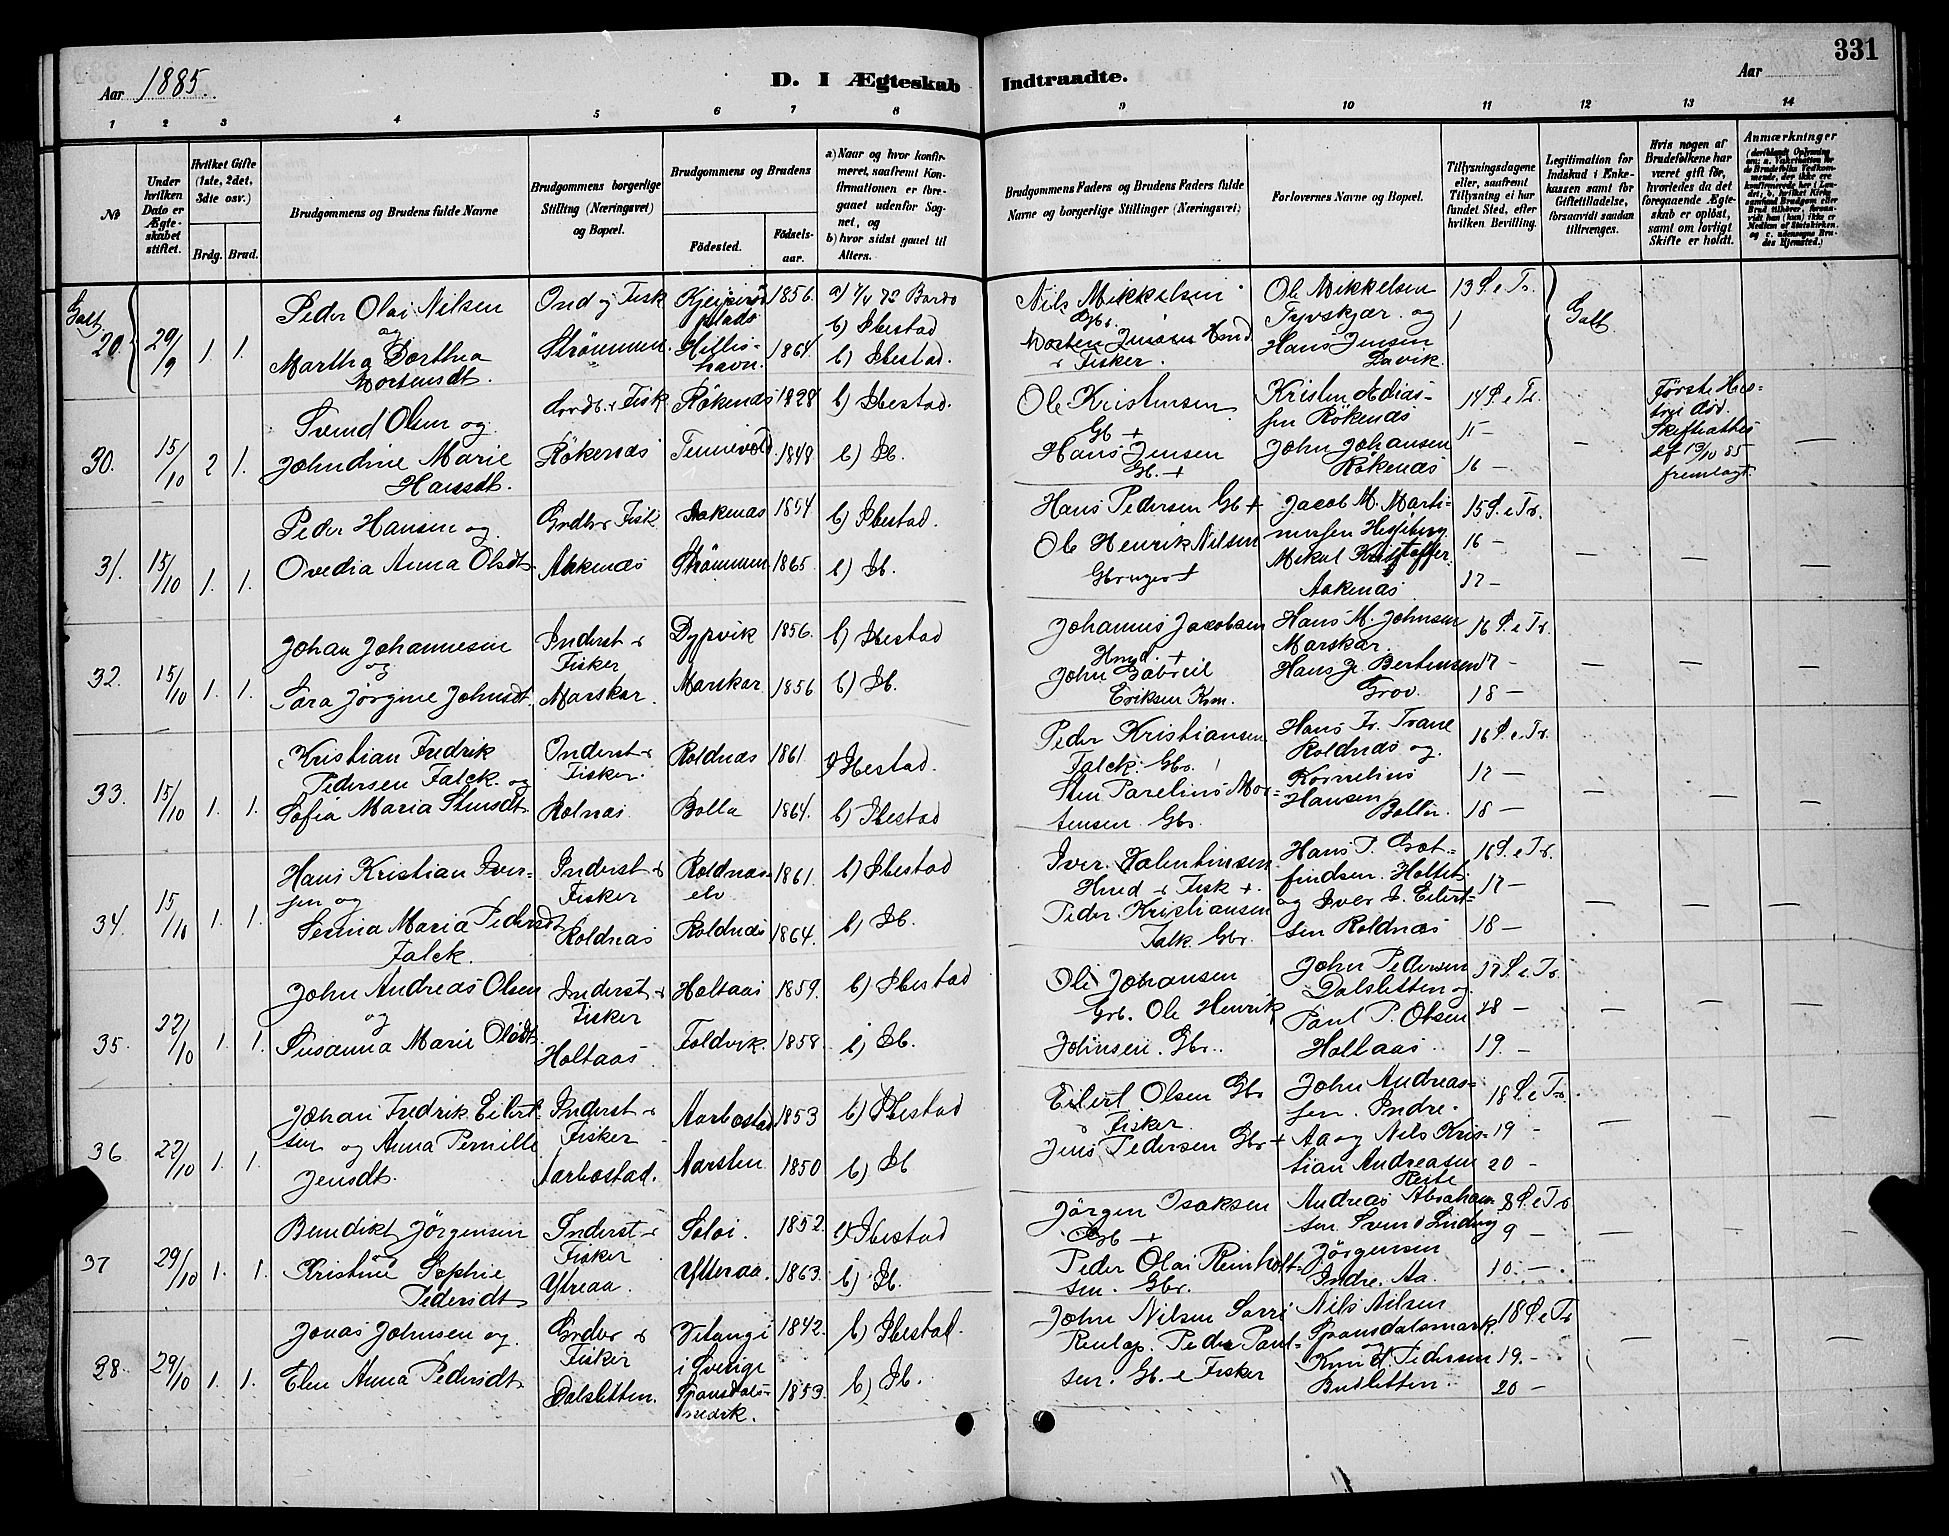 331
Aar 1885.
D. I Ægteskab Indtraadte.
Aar
1 2 3 4 5 6 7 8 9 10 11 12 13 14
№
Under hvilken Dato er Ægteskabet stiftet.
Hvilket Gifte (1ste, 2det, 3dte osv.)
Brdg. Brud.
Brudgommens og Brudens fulde Navne
Brudgommens borgerlige Stilling (Næringsvei) og Bopæl.
Brudgommens og Brudens
Fødested.
Fødselsaar.
a) Naar og hvor konfirmeret, saafremt Konfirmationen er foregaaet udenfor Sognet, og
b) hvor sidst gaaet til Alters.
Brudgommens Faders og Brudens Faders fulde Navne og borgerlige Stillinger (Næringsvei)
Forlovernes Navne og Bopæl.
Tillysningsdagene eller, saafremt Tillysning ei har fundet Sted, efter hvilken Bevilling.
Legitimation for Indskud i Enkekassen samt for Giftetilladelse, forsaavidt saadan tiltrænges.
Hvis nogen af Brudefolkene har været gift før, hvorledes da det foregaaende Ægteskab er opløst, samt om lovligt Skifte er holdt.
Anmærkninger
Galt
20. 29/9 1. 1.
Peder Olai Nilsen
og
Martha Dorthea
Mortensdt.
Ind og Fisk
Strømmen
1856.
Hillis-
havn. 1864
a) 4/4 73 Bardo
b) Ibestad
b) Ibestad.
Nils Mikkelsen
Gbr.
Morten Jensen Hmd
& Fisker.
Ole Mikkelsen
Tyvskjær og
Hans Jensen
Lavik.
13 S. e Tr.
Galt.
30. 15/10 2 1.
Svend Olsen og
Johndine Marie
Hansdt.
Gordb. & Fisk
Rökenæs
Rökenæs 1828
Tennevold 1848
b) Ibestad.
b) Ib.
Ole Kristensen
Gb +
Hans Jensen
Gb. +
Kristen Adias-
sen Rökenæs
John Johansen
Rökenæs
14 S. e Tr.
15 -
16 -
Første Hus-
tru død.
Skifteattest
af 13/10 85
fremlagt
31. 15/10 1. 1.
Peder Hansen og
Ovedia Anna Olsdt.
Grdbr & Fisk
Aakenæs
Aakenæs 1854
Strømmen 1865.
b) Ibestad.
b) Ib.
Hans Pedersen Gb +
Ole Henrik Nilsen
Gbruger +
Jacob M. Marti-
nussen Hesjeberg
Mikal Kristoffer.
Aakenæs
15 S. e Tr.
16 -
17 -
32. 15/10 1. 1.
Johan Johannesen
og
Sara Jørgine Johnsdt.
Inderst &
Fisker
Marskar.
Dypvik 1856.
Marskar 1856
b) Ibestad
b) Ib.
Johannes Jacobsen
Hmd. +
John Gabriel
Eriksen Kvm.
Hans M. Johnsen
Marskar.
Hans J. Bertinsen
Grov.
16 S. e Tr.
17 -
18 -
33. 15/10 1. 1.
Kristian Fredrik
Pedersen Falck og
Sofia Maria Stensdt.
Inderst &
Fisker
Rolnæs
Roldnæs 1861
Bolla 1864.
b) Ibestad.
b) Ibestad
Peder Kristiansen
Falck. Gbr.
Sten Parelius Mor-
tensen. Gbr.
Hans Fr. Trane
Roldnæs og
Kornelius
Hansen
Bollen.
16 S. e. Tr.
17 -
18 -
34. 15/10 1. 1.
Hans Kristian Iver-
sen og
Serina Maria Pedersdt
Falck.
Inderst &
Fisker
Roldnæs
Roldnæs-
elv 1861.
Roldnæs 1864.
b) Ibestad
b) Ib.
Iver Valentinsen
Hmd & Fisk +
Peder Kristiansen
Falk. Gbr.
Hans P. Got-
findsen. Holtet
og Iver I. Eilert-
sen Roldnæs
16 S. e Tr.
17 -
18 -
35. 22/10 1. 1.
John Andreas Olsen
og
Susanna Marie Olsdt.
Inderst &
Fisker
Holtaas
Holtaas 1859.
Foldvik. 1858.
b) Ibestad
b) Ib.
Ole Johansen
Gbr. Ole Henrik
Johnsen. Gbr.
John Pedersen
Dalsletten og
Paul P. Olsen
Holtaas.
17 S. e. Tr.
18 -
19. -
36 22/10 1. 1.
Johan Fredrik Eilert-
sen og Anna Pernille
Jensdt.
Inderst &
Fisker
Aarbostad.
Aarbostad 1853
Aarsten 1850
b) Ibestad
b) Ib
Eilert Olsen Gbr
& Fisker.
Jens Pedersen Gbr +
John Andreas-
sen. Indre-
Aa og Nils Kris-
tian Andreasen
18 S. e Tr.
19 -
20 -
37 29/10 1. 1.
Benedikt Jörgensen
og
Kristine Sophie
Pedersdt
Inderst &
Fisker
Ytreaa.
Soløi. 1852.
Ytteraa. 1863.
b) Ibestad
b) Ib.
Jörgen Isaksen
Gb +
Peder Olai Reinholt-
sen. Gbr.
Andreas Abraham-
sen. Svend Ludvig
Jörgensen
Indre. Aa.
8 S. e Tr.
9 -
10. -
38. 29/10 1. 1.
Jonas Johnsen og
Elen Anna Pedersdt.
Grdbr &
Fisker
Dalsletten.
Vitangi 1842.
i Sverige
Spansdals- 1853.
mark.
b) Ibestad.
b) Ib.
John Nilsen Sarri
Renlap. Peder Paul-
sen. Gb. & Fisker
Nils Nilsen
Spansdalsmark.
og
Knud Pedersen
Budsletten.
18 S. e Tr
19. -
20 -